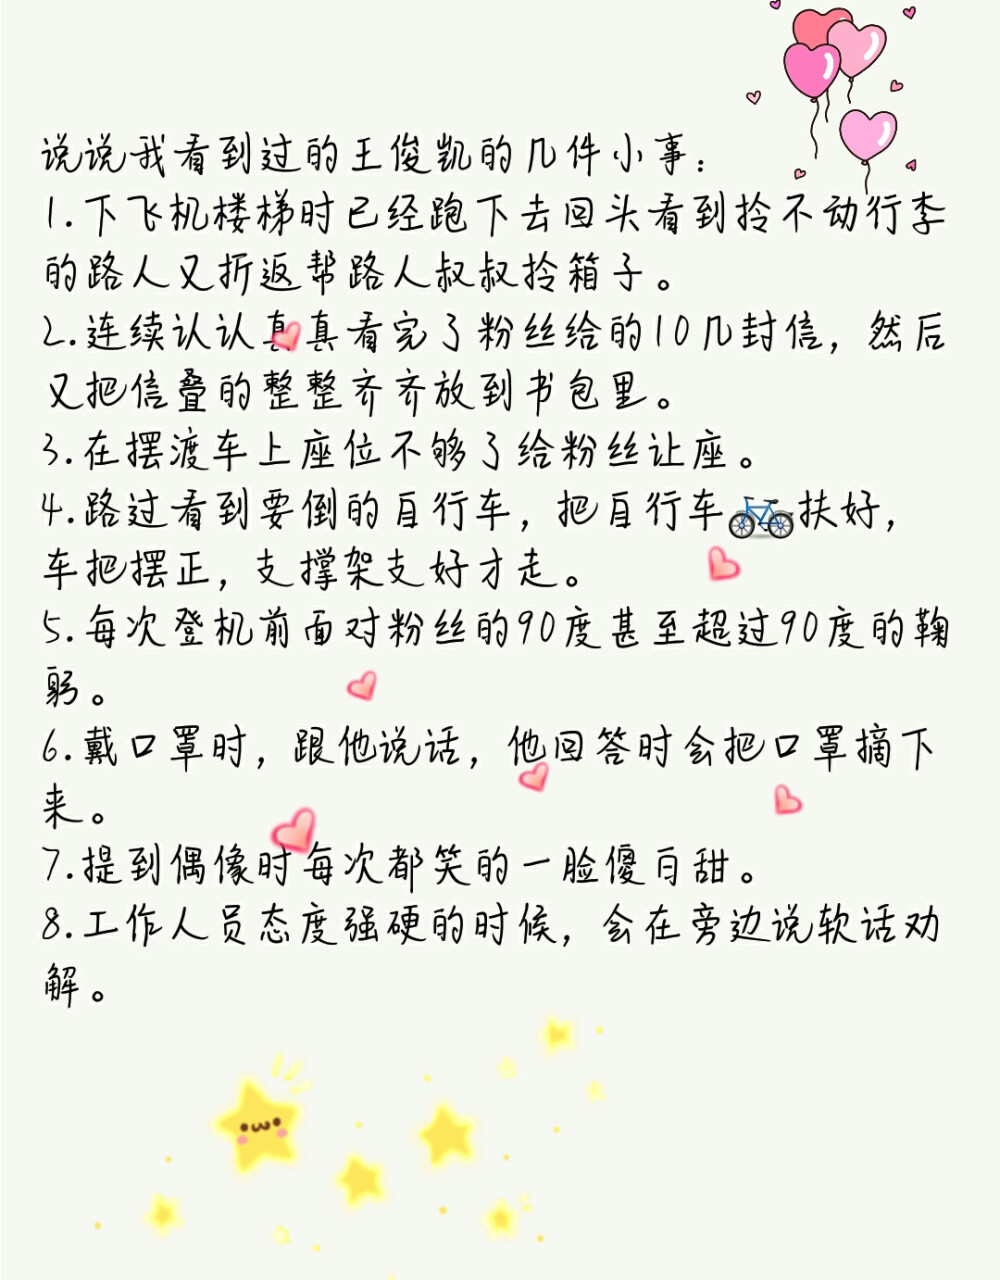 说说我看到过的王俊凯的几件小事：
1.下飞机楼梯时已经跑下去回头看到拎不动行李
的路人又折返帮路人叔叔拎箱子。
2.连续认认真真看完了粉丝给的10几封信，然后
又把信叠的整整齐齐放到书包里。
3.在摆渡车上座位不够了给粉丝让座。
4.路过看到要倒的自行车，把自行车🚲扶好，
车把摆正，支撑架支好才走。
5.每次登机前面对粉丝的90度甚至超过90度的鞠
躬。
6.戴口罩时，跟他说话，他回答时会把口罩摘下
来。
7.提到偶像时每次都笑的一脸傻白甜。
8.工作人员态度强硬的时候，会在旁边说软话劝
解。